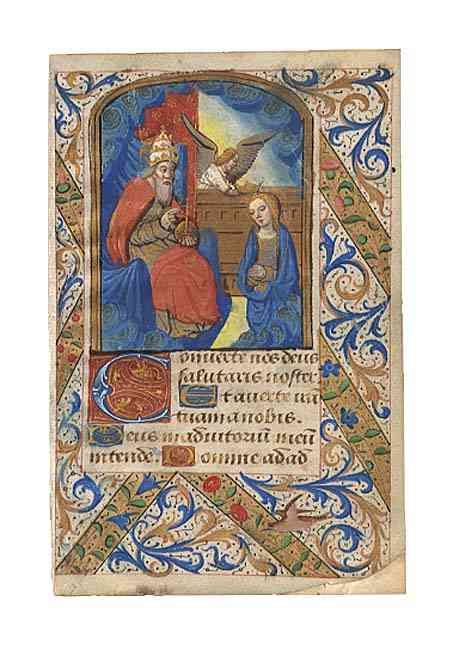 Conuerte nos deus
salutaris noster.
Et auerte irā
tuam a nobis.
Deus in adiutoriū meū
intende. Domine ad ad